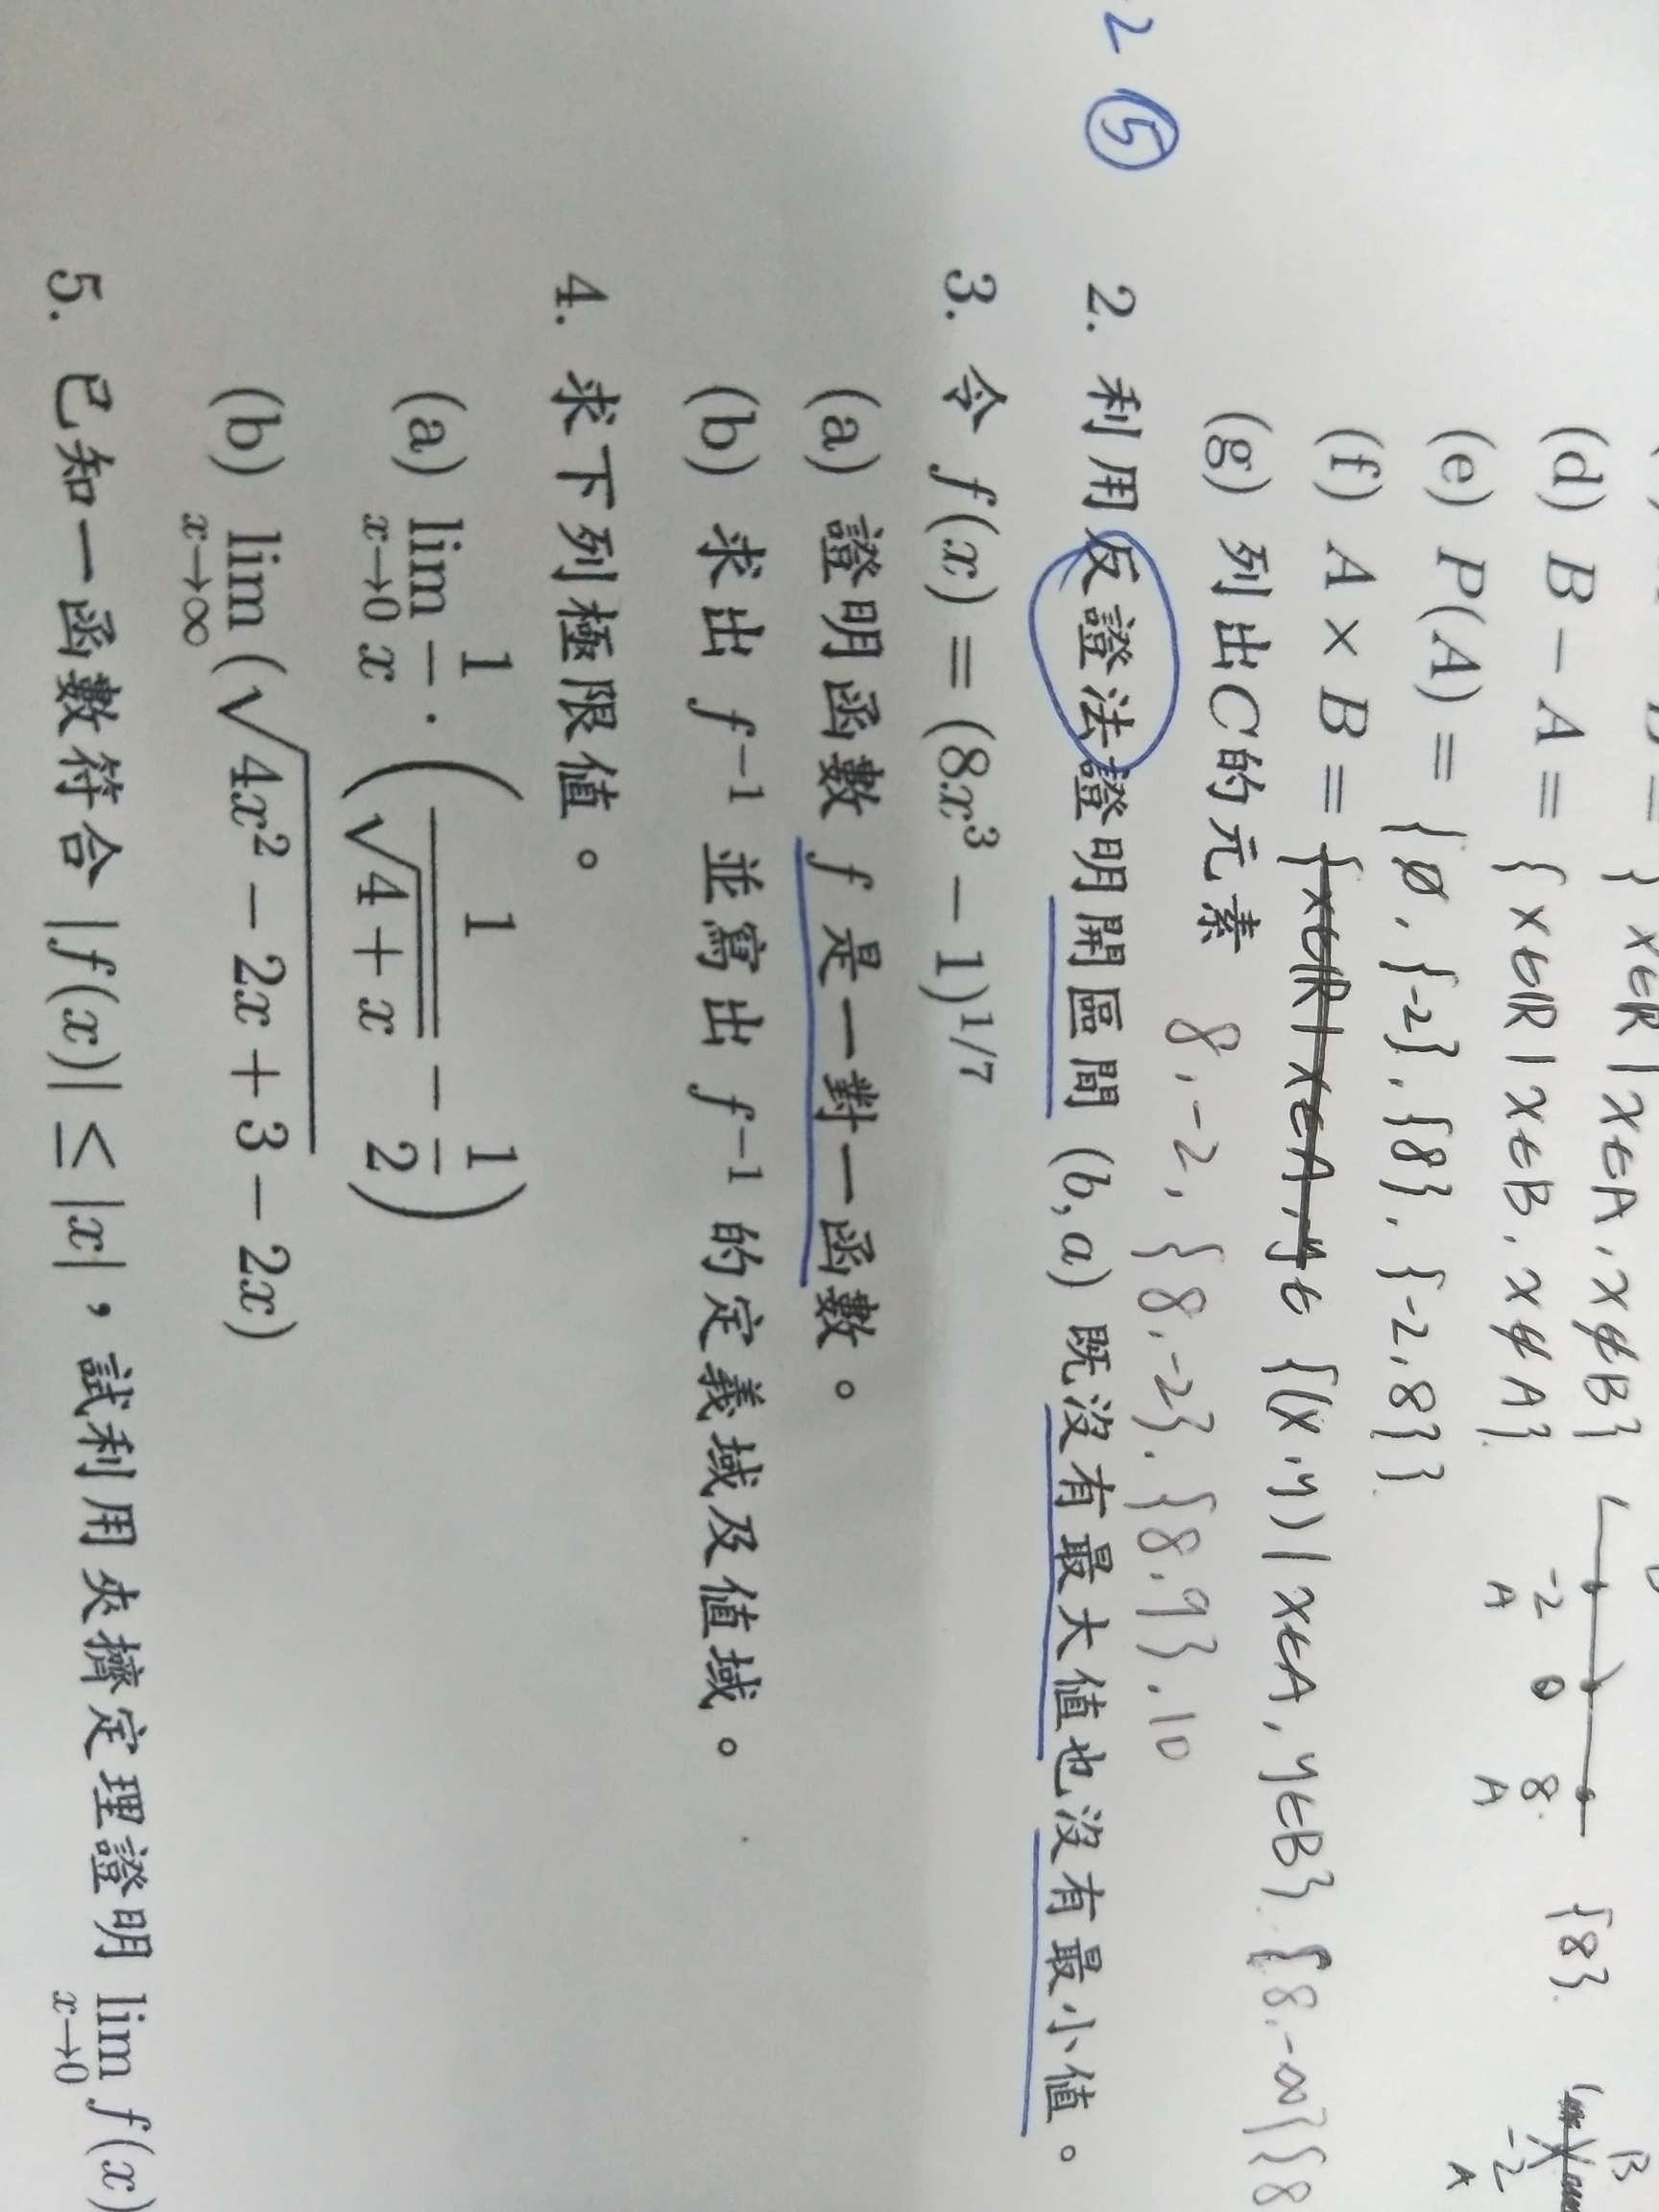 (d) B − A = { x∈ℝ | x∈B, x∉A }.
(e) P(A) = {∅, {-2}, {8}, {-2,8}}.
(f) A × B = {(x,y) | x∈A, y∈B}.
(g) 列出C的元素 8, -2, {8,-2}, {8,9}, 10
2 ⑤
2. 利用反證法證明開區間 (b, a) 既沒有最大值也沒有最小值。
3. 令 f(x) = (8x³ − 1)^{1/7}
(a) 證明函數 f 是一對一函數。
(b) 求出 f⁻¹ 並寫出 f⁻¹ 的定義域及值域。
4. 求下列極限值。
(a) lim_{x→0} 1/x · (1/√(4 + x) − 1/2)
(b) lim_{x→∞} (√(4x² − 2x + 3) − 2x)
5. 已知一函數符合 |f(x)| ≤ |x|，試利用夾擠定理證明 lim_{x→0} f(x)